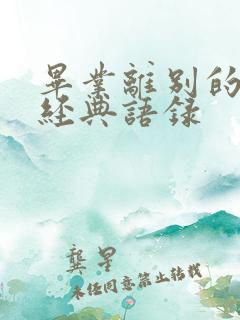 畢業離別的
經典語錄
龔星
未經同意禁止轉載